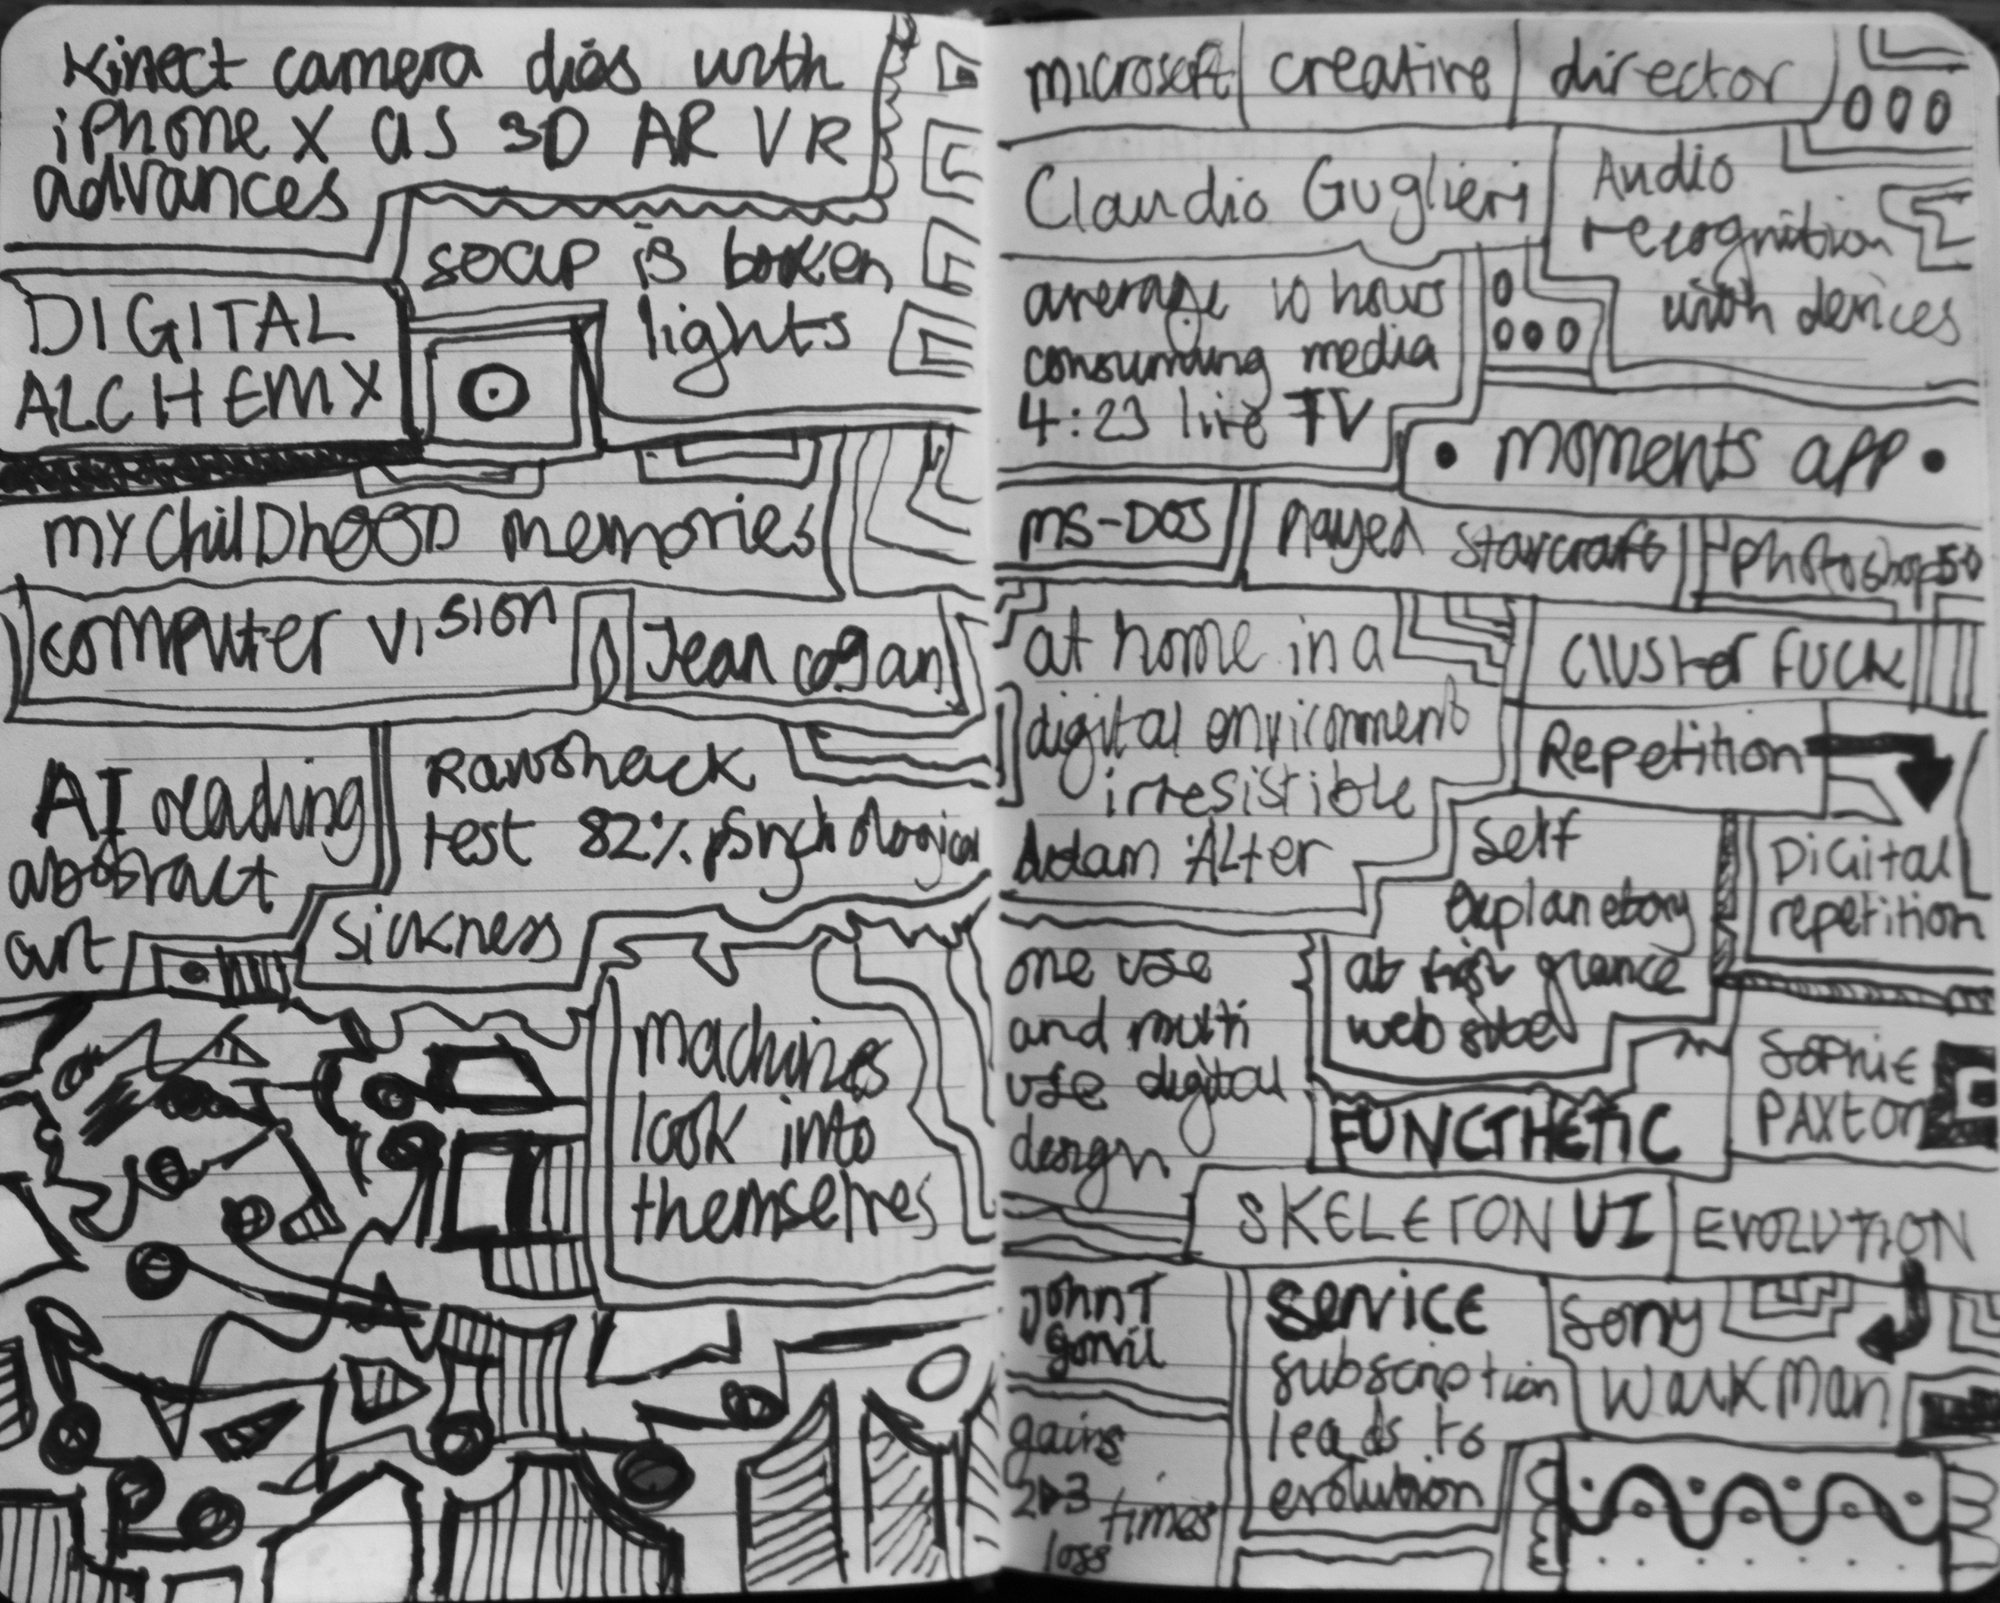 Kinect camera dies with
iPhone X as 3D AR VR
advances
soap is broken
lights
DIGITAL
ALCHEMY
my childhood memories
computer vision
Jean cogan
AI reading
abstract
art
Rawshack
test 82% psychological
sickness
machines
look into
themselves
microsoft creative director
Claudio Guglieri
Audio
recognition
with devices
average 10 hours
consuming media
4:23 live TV
• moments app •
MS-DOS
Played Starcraft
Photoshop 5.0
at home in a
digital environment
irresistible
Adam Alter
Cluster Fuck
Repetition
Digital
repetition
self
explanetory
at first glance
website
one use
and multi
use digital
design
FUNCTHETIC
SOPHIE
PAXton
SKELETON UI
EVOLUTION
John T
gains
2 3 times
loss
SERVICE
subscription
leads to
evolution
Sony
Walkman